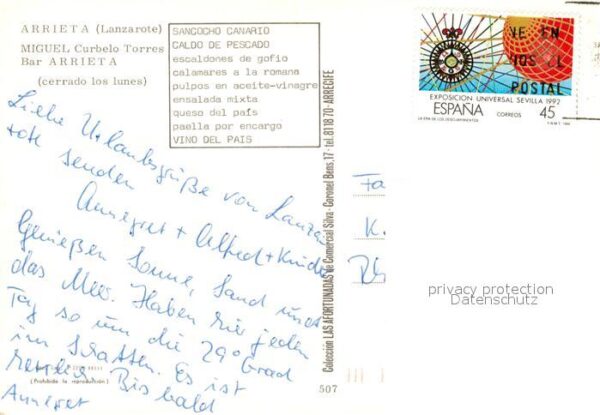 ARRIETA (Lanzarote)
MIGUEL Curbelo Torres
Bar ARRIETA
(cerrado los lunes)
SANCOCHO CANARIO
CALDO DE PESCADO
escaldones de gofio
calamares a la romana
pulpos en aceite-vinagre
ensalada mixta
queso del país
paella por encargo
VINO DEL PAIS
Liebe Urlaubsgrüße von Lanza-
rote senden
Annegret + Alfred + Kinder
Genießen Sonne, Sand und
das Meer. Haben hier jeden
Tag so um die 29° Grad
im Schatten. Es ist
Bis bald
Annegret
(Prohibida la reproducción)
507
Colección LAS AFORTUNADAS de Comercial Silva - Coronel Bens, 17 - tel. 811870 - ARRECIFE
VE EN
IOS L
POSTAL
EXPOSICION UNIVERSAL SEVILLA 1992
ESPAÑA
CORREOS
45
LA ERA DE LOS DESCUBRIMIENTOS
Fa
K.
privacy protection
Datenschutz